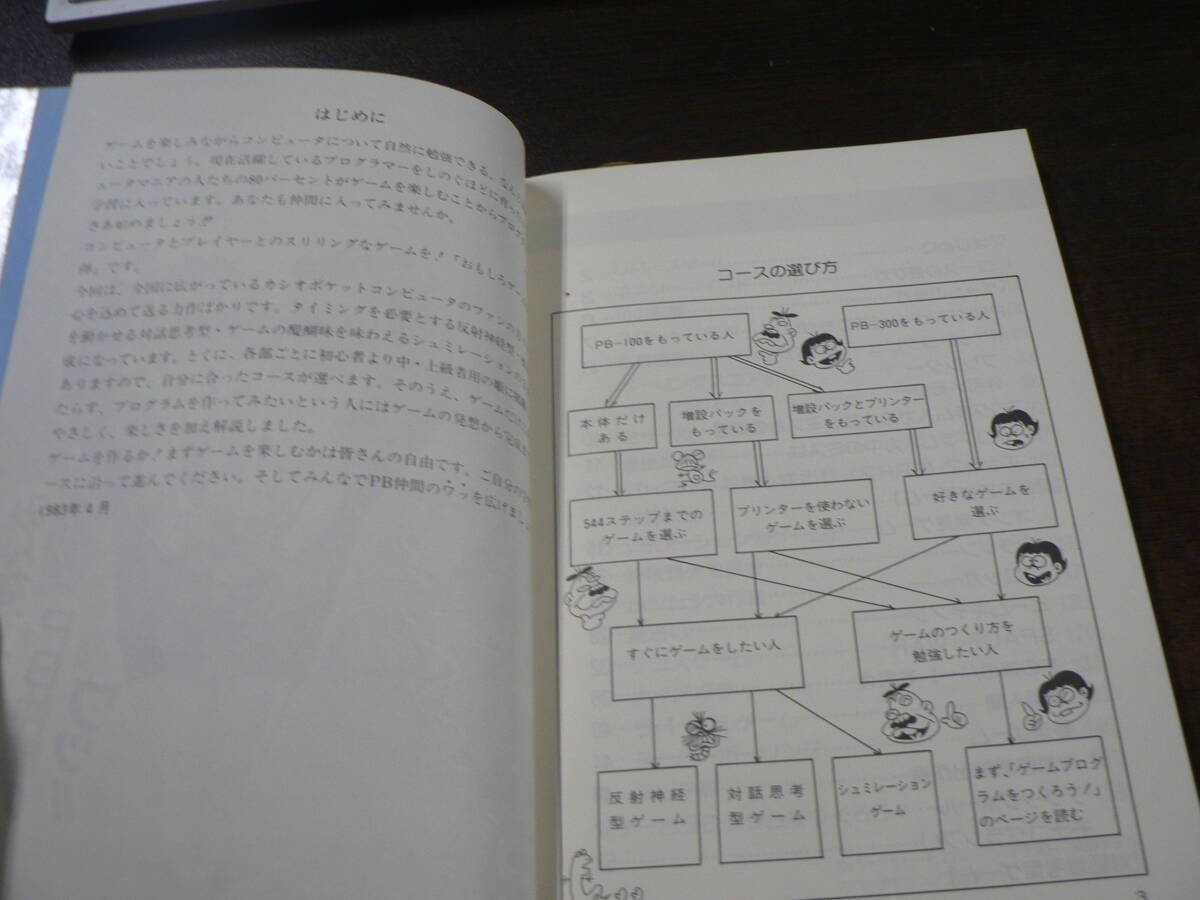 はじめに
ゲームを楽しみながらコンピュータについて自然に勉強できる。なん
いことでしょう。現在活躍しているプログラマーをしのぐほどに育った
ュータマニアの人たちの80パーセントがゲームを楽しむことからプログ
学習に入っています。あなたも仲間に入ってみませんか。
さあ始めましょう!!
コンピュータとプレイヤーとのスリリングなゲームを!「おもしろゲーム
弾」です。
今回は、全国に広がっているカシオポケットコンピュータのファンの
心を込めて送る力作ばかりです。タイミングを必要とする反射神経型・
を働かせる対話思考型・ゲームの醍醐味を味わえるシュミレーション
成になっています。とくに、各部ごとに初心者より中・上級者用の順に
ありますので、自分に合ったコースが選べます。そのうえ、ゲームだけ
たらず、プログラムを作ってみたいという人にはゲームの発想から完成
やさしく、楽しさを加え解説しました。
ゲームを作るか!まずゲームを楽しむかは皆さんの自由です。ご自分の
ースに沿って進んでください。そしてみんなでPB仲間のワッを広げまし
1983年4月
コースの選び方
PB-100をもっている人
PB-300をもっている人
本体だけ
ある
増設パックを
もっている
増設パックとプリンター
をもっている
544ステップまでの
ゲームを選ぶ
プリンターを使わない
ゲームを選ぶ
好きなゲームを
選ぶ
すぐにゲームをしたい人
ゲームのつくり方を
勉強したい人
反射神経
型ゲーム
対話思考
型ゲーム
シュミレーション
ゲーム
まず、「ゲームプログ
ラムをつくろう!」
のページを読む
3